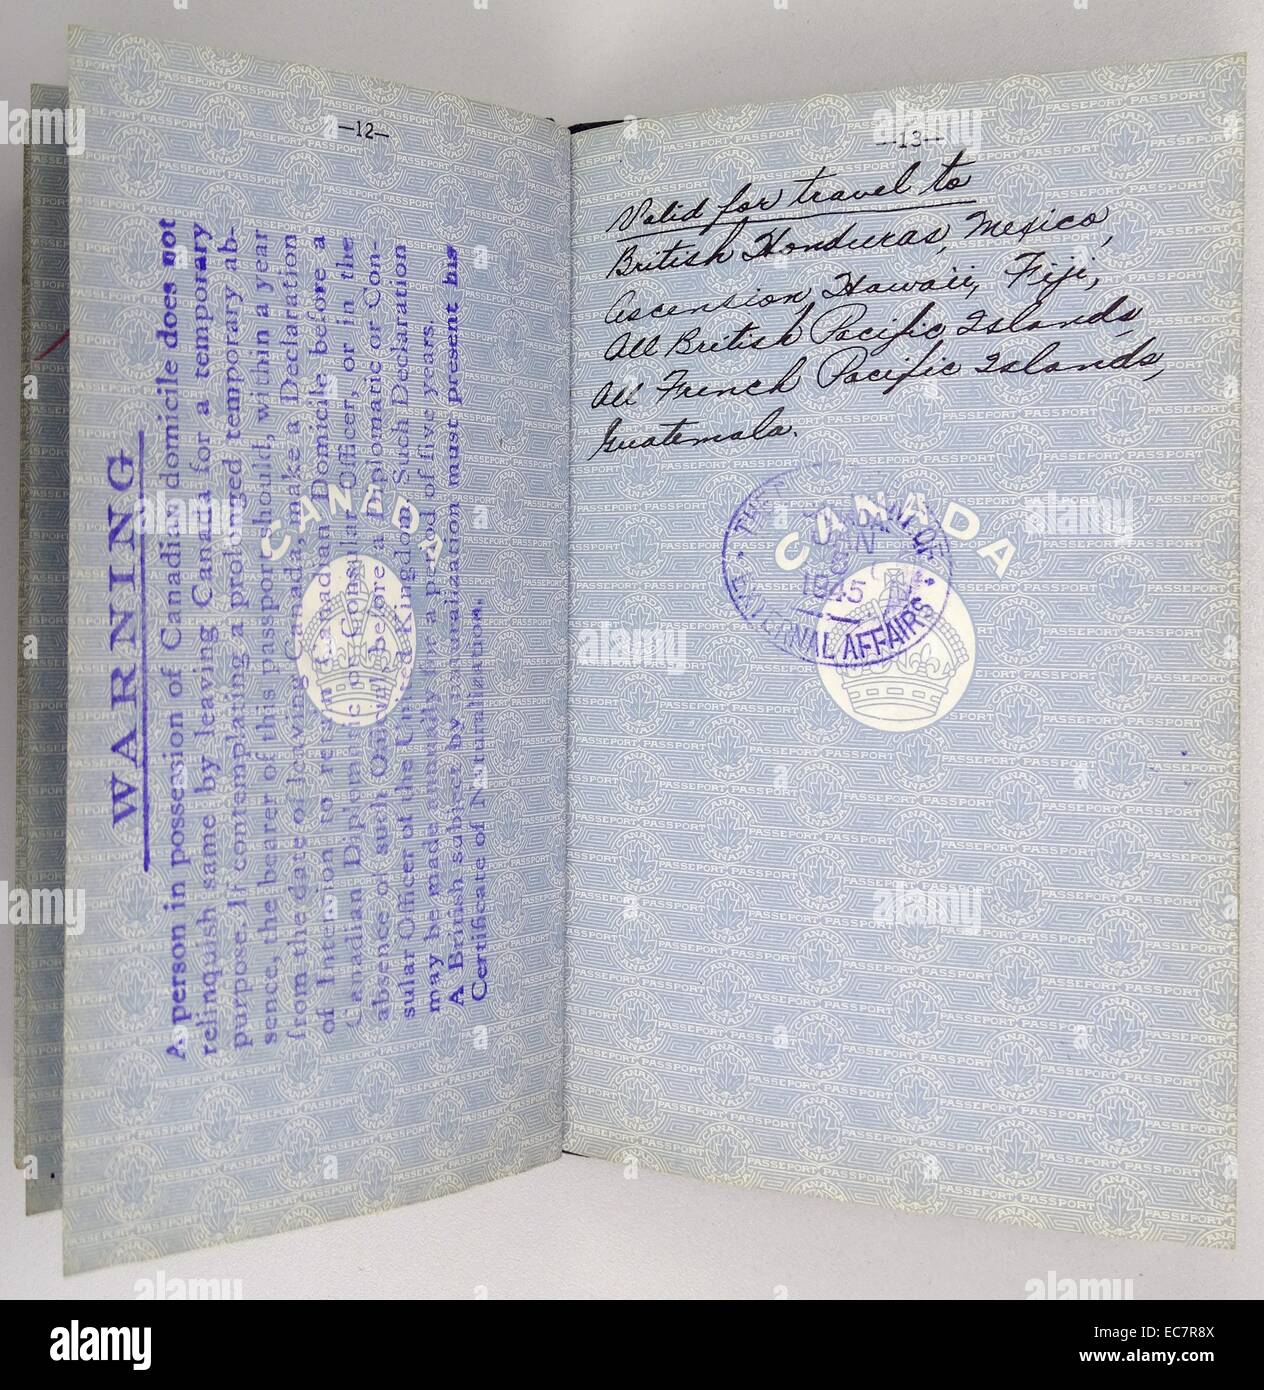 —12—
WARNING
A person in possession of Canadian domicile does not
relinquish same by leaving Canada for a temporary
purpose. If contemplating a prolonged temporary ab-
sence, the bearer of this passport should, within a year
from the date of leaving Canada, make a Declaration
of Intention to retain Canadian Domicile before a
Canadian Diplomatic or Consular Officer, or in the
absence of such Officer, before a Diplomatic or Con-
sular Officer of the United Kingdom. Such Declaration
may be made annually for a period of five years.
A British subject by naturalization must present his
Certificate of Naturalization.
CANADA
—13—
Valid for travel to
British Honduras, Mexico,
Ascension, Hawaii, Fiji,
All British Pacific Islands,
All French Pacific Islands,
Guatemala.
CANADA
OF EXTERNAL AFFAIRS
JAN
1945
CANADA
PASSEPORT PASSPORT
alamy
EC7R8X
www.alamy.com